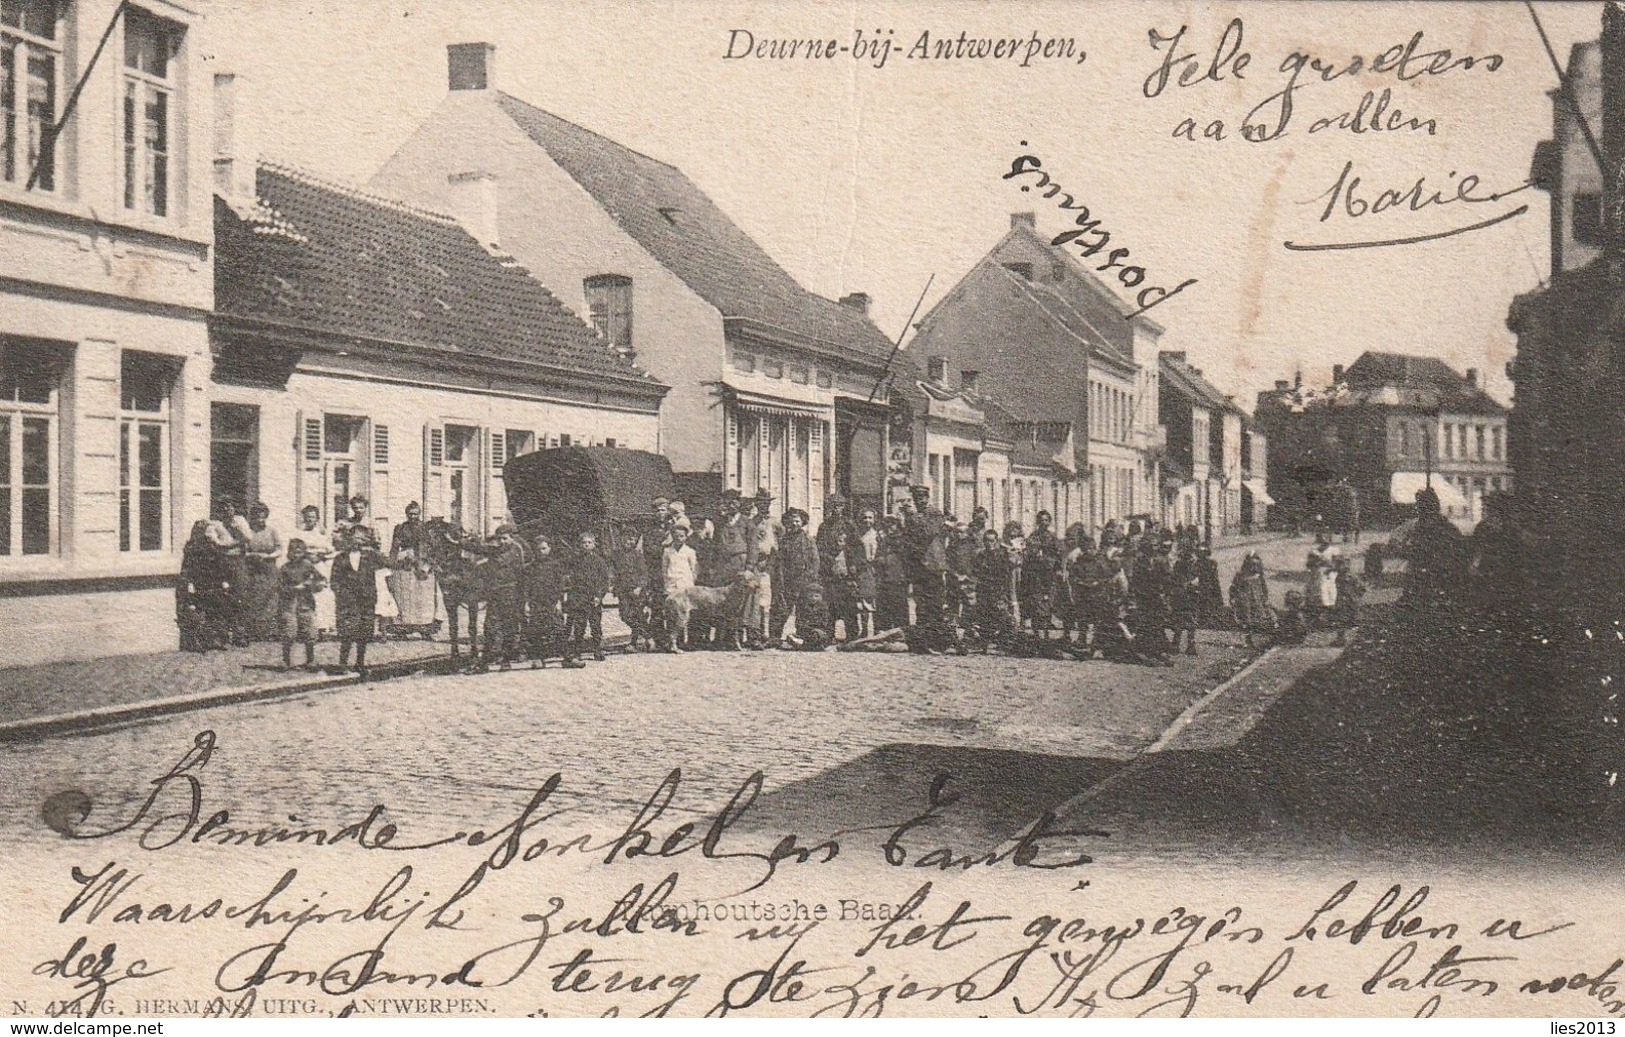 Deurne-bij-Antwerpen,
Vele groeten
aan allen
Marie
posthuis.
Beminde Nonkel en Tante
Waarschijnlijk zullen wij het genoegen hebben u
Turnhoutsche Baan.
deze maand terug te zien Ik zal u laten weten
N. 414, G. HERMANS, UITG., ANTWERPEN.
delcampe.net
lies2013